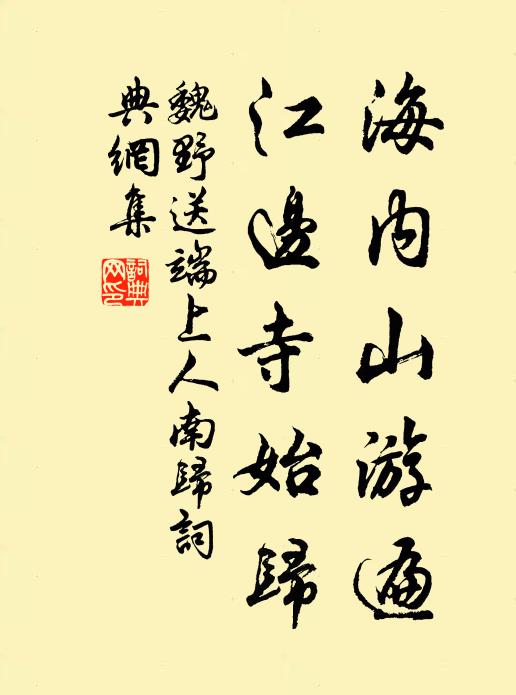 海内山游遍
江邊寺始歸
魏野送端上人南歸詞
典網集
詞典
网印